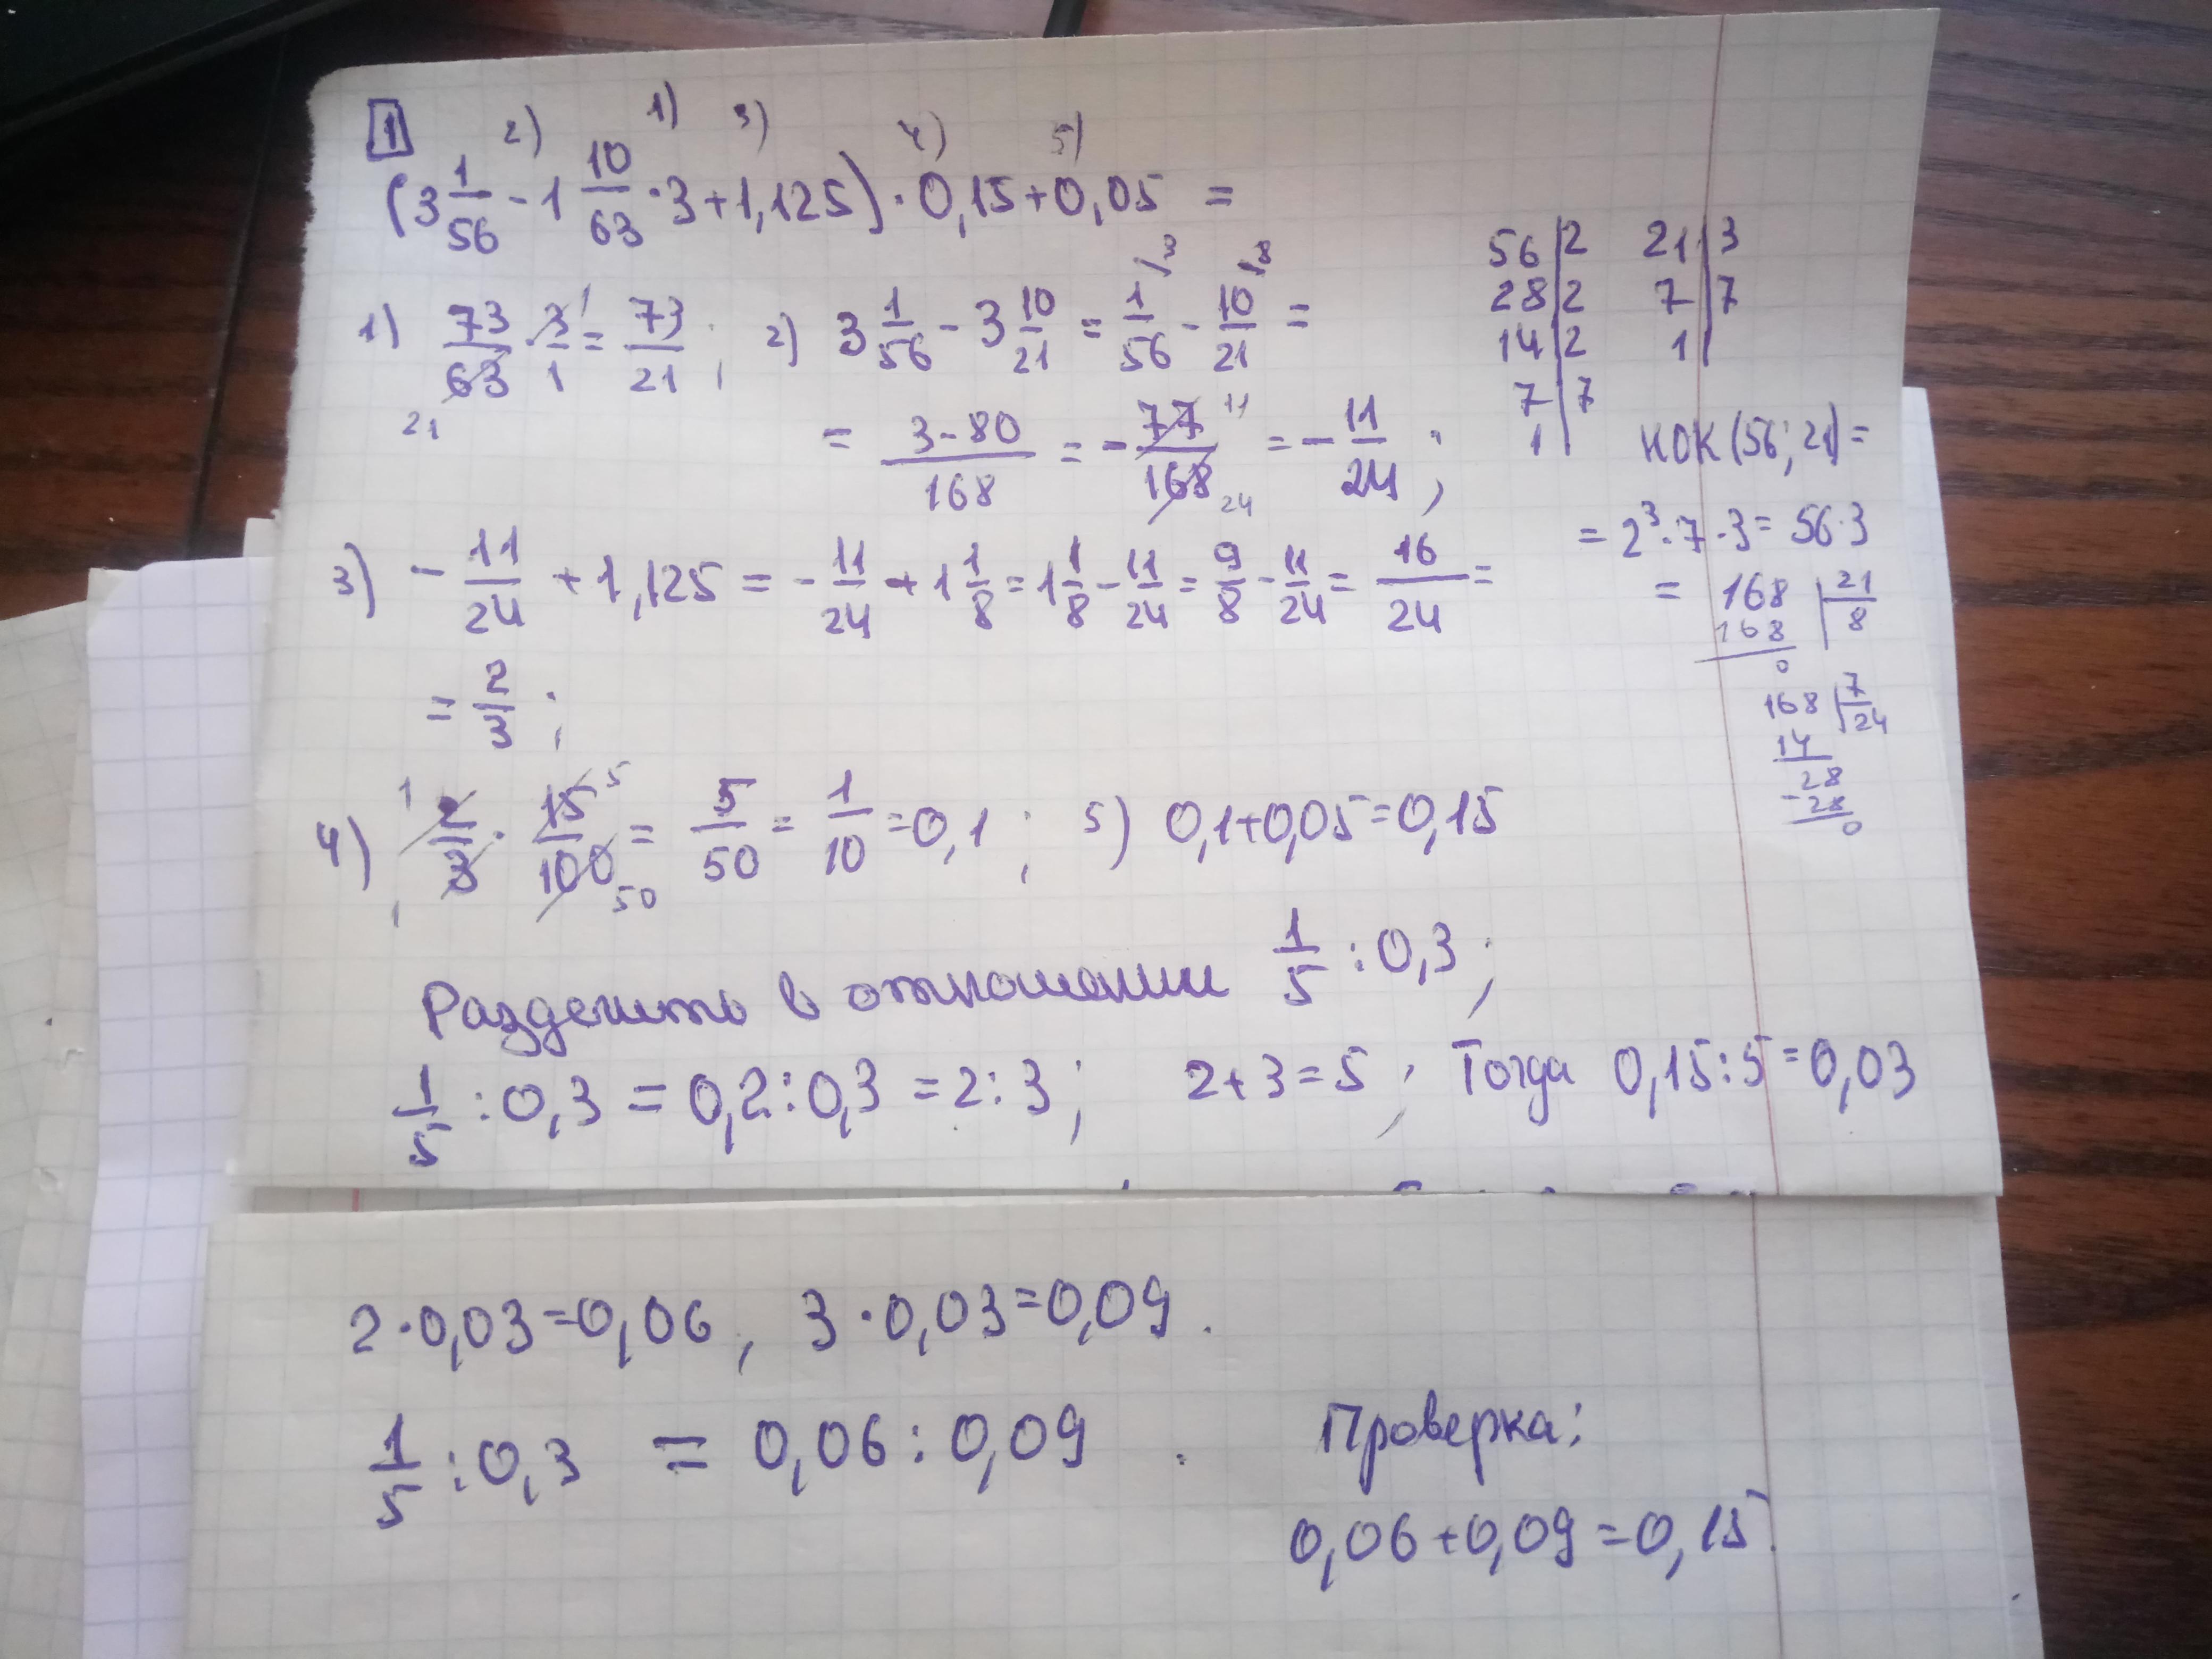 1
2) 1) 3) 4) 5)
(3 1/56 - 1 10/63 · 3 + 1,125) · 0,15 + 0,05 =
1) 73/63 · 3/1 = 73/21 ; 2) 3 1/56 - 3 10/21 = 1/56 - 10/21 =
21 1 3 8
= 3-80/168 = - 77/168 = - 11/24 ;
11 24
56 | 2 21 | 3
28 | 2 7 | 7
14 | 2 1
7 | 7
1
НОК (56; 21) =
= 2³ · 7 · 3 = 56·3
= 168 | 21
168 8
0
168 | 7
14 24
28
- 28
0
3) - 11/24 + 1,125 = - 11/24 + 1 1/8 = 1 1/8 - 11/24 = 9/8 - 11/24 = 16/24 =
= 2/3 ;
4) 2/3 · 15/100 = 5/50 = 1/10 = 0,1 ; 5) 0,1+0,05=0,15
1 1 5 50
Разделить в отношении 1/5 : 0,3 ;
1/5 : 0,3 = 0,2 : 0,3 = 2 : 3 ; 2+3=5 ; Тогда 0,15:5=0,03
2·0,03=0,06 , 3·0,03=0,09 .
1/5 : 0,3 = 0,06 : 0,09 .
Проверка:
0,06+0,09=0,15.